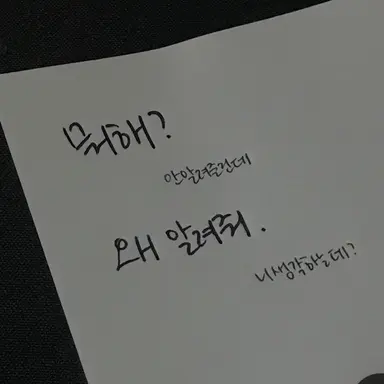 뭐해?
안알려줄건데
왜 알려줘.
니생각하는데?